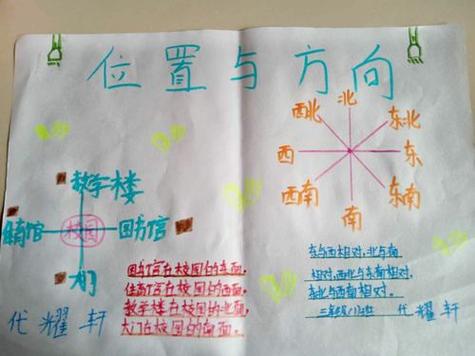 位置与方向
北
西北
东北
西
东
西南
东南
南
教学楼
体育馆
校园
图书馆
大门
图书馆在校园的东面。
体育馆在校园的西面。
教学楼在校园的北面。
大门在校园的南面。
东与西相对，北与南
相对，西北与东南相对，
东北与西南相对。
代耀轩
代耀轩